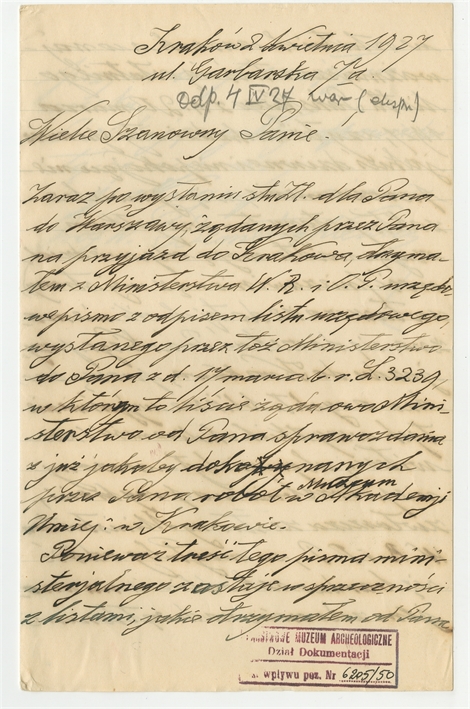 Kraków 2 kwietnia 1927
ul. Garbarska 7a.
odp. 4 IV 27
Wielce Szanowny Panie.
Zaraz po wysłaniu stu Zł. dla Pana
do Warszawy, żądanych przez Pana
na przyjazd do Krakowa, otrzyma-
łem z Ministerstwa W. R. i O. P. urzędo-
we pismo z odpisem listu urzędowego,
wysłanego przez toż Ministerstwo
do Pana z d. 17 marca b. r. L. 3239,
w którym to liście żąda owo Mini-
sterstwo od Pana sprawozdania
z już jakoby dokonanych
przez Pana robót w Muzeum Akademji
Umiej. w Krakowie.
Ponieważ treść tego pisma mini-
sterjalnego zostaje w sprzeczności
z listami, jakie otrzymałem od Pana
PAŃSTWOWE MUZEUM ARCHEOLOGICZNE
Dział Dokumentacji
wpływu poz. Nr 6205/50